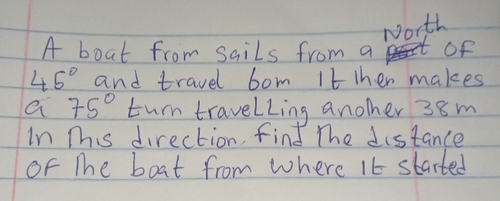 A boat from sails from a North of
45° and travel 60m It then makes
a 75° turn travelling another 38m
In this direction. Find the distance
of the boat from where it started